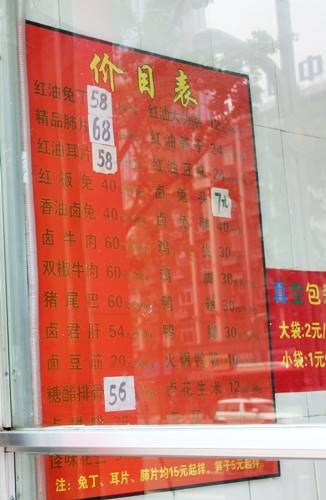 价目表
红油兔丁 58
精品肺片 68
红油耳片 58
红板兔 40
香油卤兔 40
卤牛肉 60
双椒牛肉 60
猪尾巴 60
卤君肝 54
卤豆筋 20
糖醋排骨 56
怪味花生
红油大头菜 12
红油笋子 24
红油豆
卤兔头 7元
卤兔腿 40
鸡 30
鸡脚 30
鸭 30
鸭 30
火锅鸭筋 40
卤花生米 12
注：兔丁、耳片、肺片均15元起拌，笋子5元起拌。
真空包装
大袋:2元/
小袋:1元
中